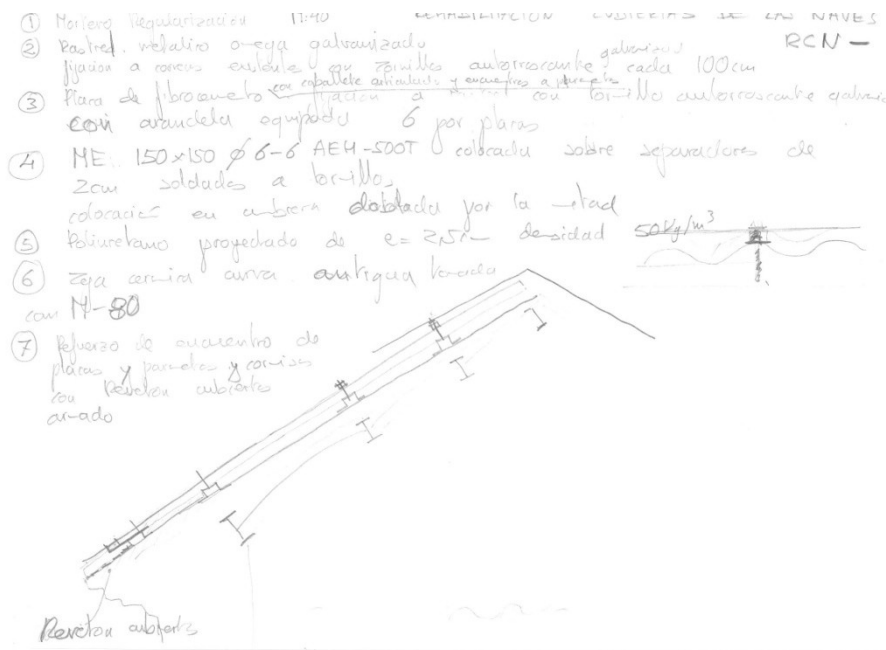 ① Mortero Regularización M:40 REHABILITACION CUBIERTAS DE LAS NAVES
RCN -
② Rastrel metalico omega galvanizado
fijacion a correas existente con tornillos autorroscante galvanizado cada 100cm
con caballete articulado y encuentros a paramento
③ Placa de fibrocemento fijacion a con tornillo autorroscante
con arandela equipado 6 por placas
④ ME 150x150 ø 6-6 AEH-500T colocada sobre separadores de
2cm soldados a tornillos
colocacion en cumbrera doblada por la mitad
⑤ Poliuretano proyectado de e= densidad 50Kg/m³
⑥ Teja ceramica curva antigua tomada
con M-80
⑦ Refuerzo de encuentro de
placas y parametos y cornisas
con Reveton cubiertas
armado
Reveton cubierta